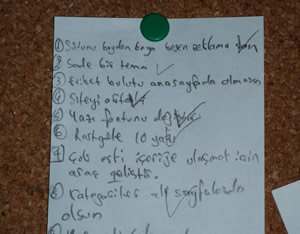 ① Sütunu boydan boya kesen reklama son
② Sade bir tema
③ Etiket bulutu anasayfada olmasın
④ Siteyi
⑤ Yazı fontunu değiştir
⑥ Rastgele 10 yazı
⑦ Çok eski içeriğe ulaşmak için
araç geliştir.
⑧ Kategoriler alt sayfalarda
olsun